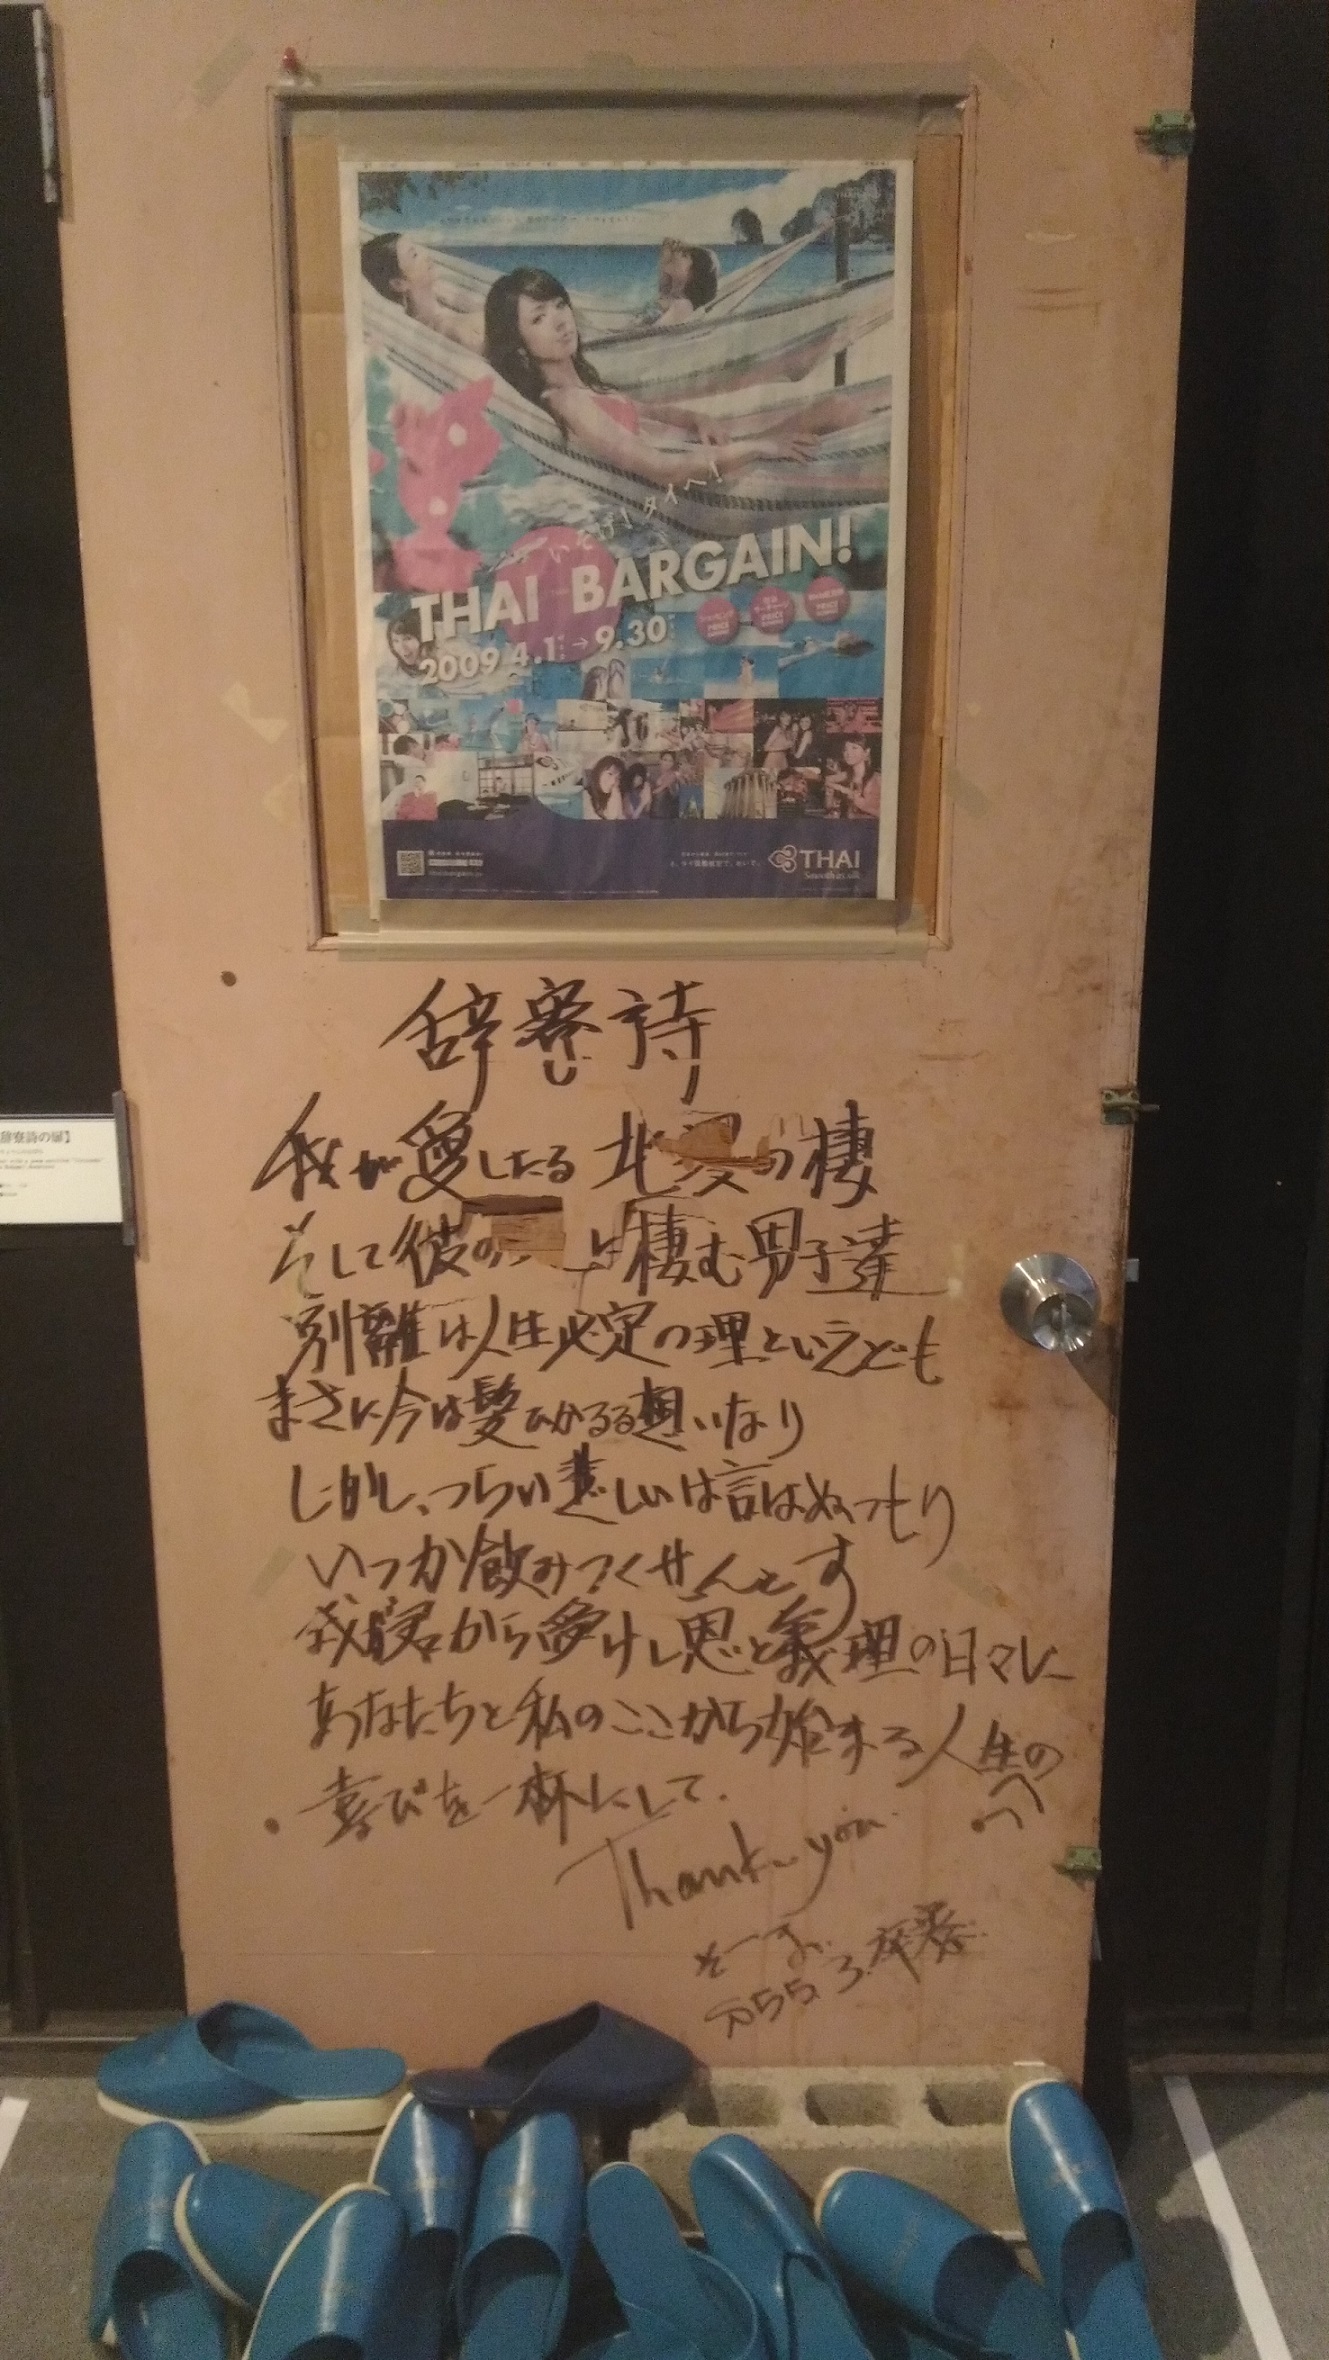 いそげ！タイへ！
THAI BARGAIN!
2009 4.1 → 9.30
PRICE
PRICE
PRICE
THAI
Smooth as silk
辞寮詩の扉】
辞寮詩
我が愛したる北の棲
そして彼のに棲む男子達
別離は人生必定の理といえども
まさに今は髪ひかるる想いなり
しかし、つらい悲しいは言はぬつもり
いつか飲みつくせんとす
我君から受けし恩と義理の日々に
あなたちと私のここから始まる人生の
へ
喜びを一杯にして.
Thank you
そーま
S55.3.辞寮